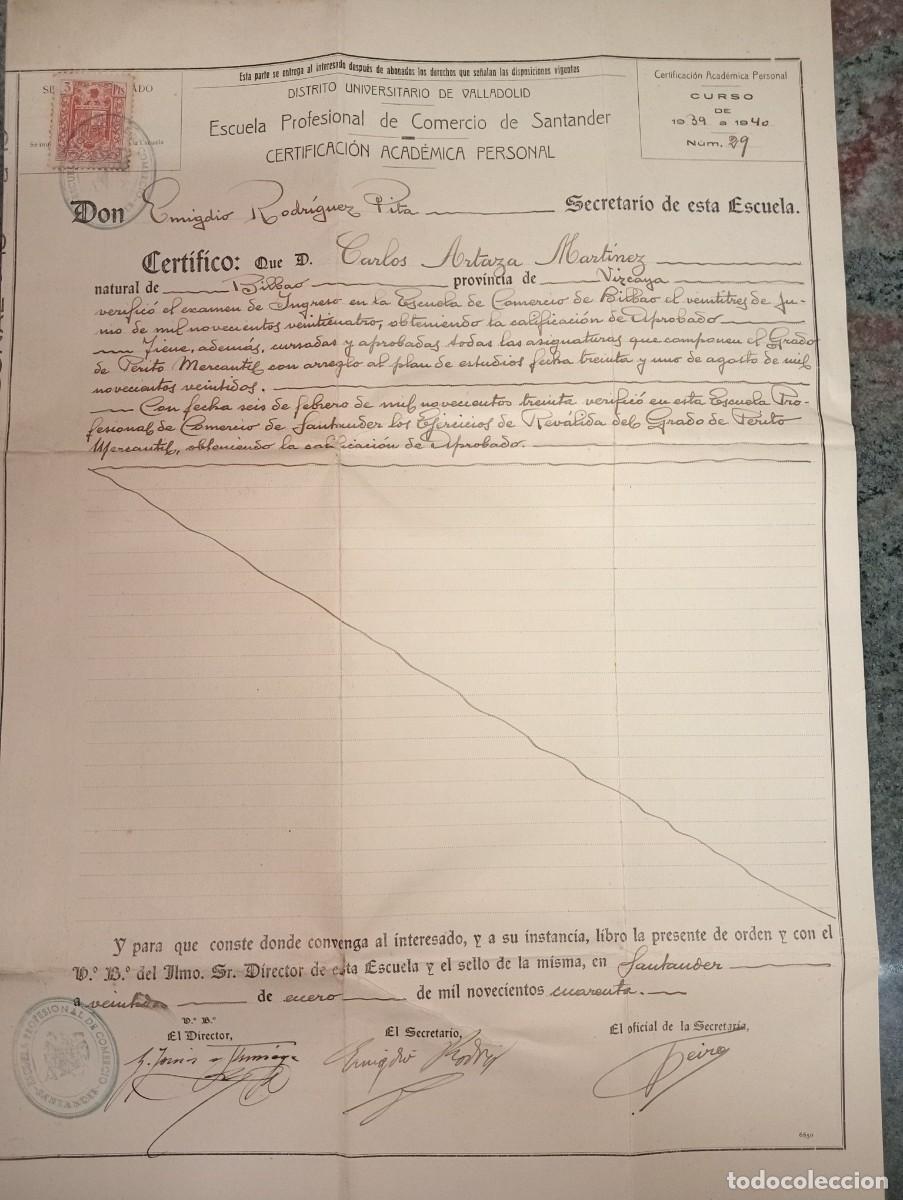 Esta parte se entrega al interesado después de abonados los derechos que señalan las disposiciones vigentes
3 Pts
DISTRITO UNIVERSITARIO DE VALLADOLID
Escuela Profesional de Comercio de Santander
CERTIFICACIÓN ACADÉMICA PERSONAL
Certificación Académica Personal
CURSO
DE
1939 a 1940
Núm. 29
Don Emigdio Rodríguez Pita Secretario de esta Escuela.
Certifico: Que D. Carlos Artaza Martínez
natural de Bilbao provincia de Vizcaya
verificó el examen de Ingreso en la Escuela de Comercio de Bilbao el veintitres de Ju-
nio de mil novecientos veinticuatro, obteniendo la calificación de Aprobado
Tiene, además, cursadas y aprobadas todas las asignaturas que componen el Grado
de Périto Mercantil con arreglo al plan de estudios fecha treinta y uno de agosto de mil
novecientos veintidos.
Con fecha seis de febrero de mil novecientos treinta verificó en esta Escuela Pro-
fesional de Comercio de Santander los Ejercicios de Reválida del Grado de Périto
Mercantil, obteniendo la calificación de Aprobado.
Y para que conste donde convenga al interesado, y a su instancia, libro la presente de orden y con el
V.º B.º del Ilmo. Sr. Director de esta Escuela y el sello de la misma, en Santander
a de enero de mil novecientos cuarenta.
V.º B.º
El Director,
El Secretario,
El oficial de la Secretaría,
Emigdio Rodríg
ESCUELA PROFESIONAL DE COMERCIO
SANTANDER
6650
todocoleccion